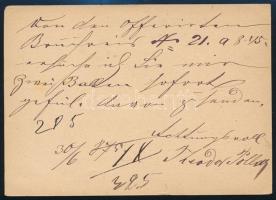 Von den offerirten
Bruchreis No 21. a 8.45.
ersuche ich Sie mir
zwei Ballen sofort
gefäll. davon zu senden.
285
Achtungsvoll
30/6 875 Theodor Pollak
IX
325